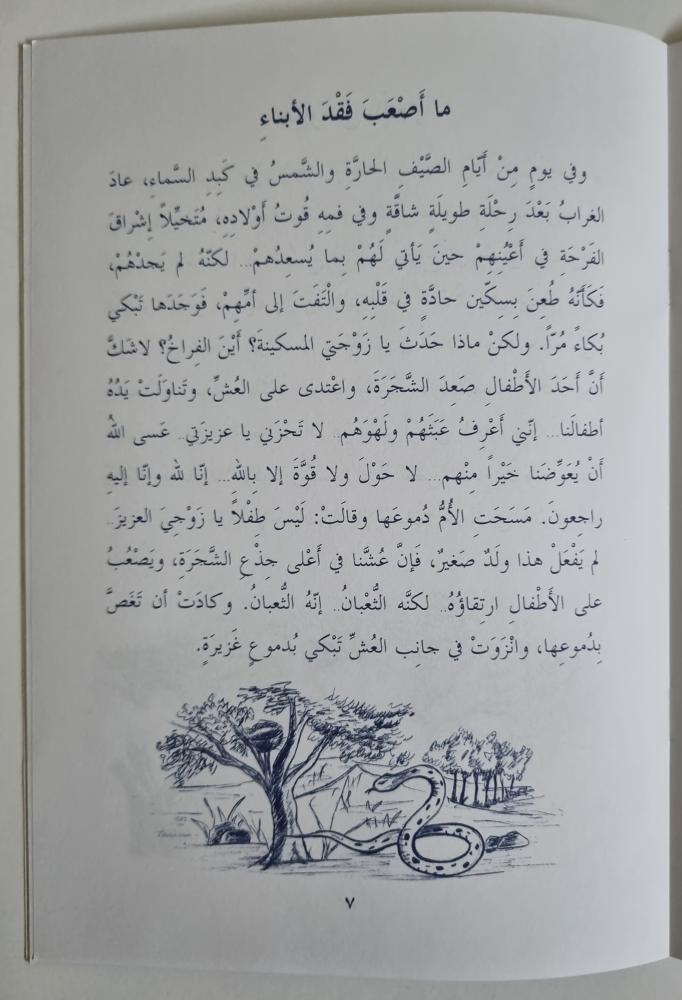 ما أَصْعَبَ فَقْدَ الأبناءِ
وفي يومٍ مِنْ أَيّامِ الصَّيْفِ الحارَّةِ والشَّمسُ في كَبِدِ السَّماءِ، عادَ
الغرابُ بَعْدَ رِحْلَةٍ طويلَةٍ شاقَّةٍ وفي فمِهِ قُوتُ أوْلادِهِ، مُتَخيِّلاً إشْراقَ
الفَرْحَةِ في أَعْيُنِهِمْ حينَ يَأتي لَهُمْ بِما يُسعِدُهمْ.. لكنّهُ لم يَجدْهُمْ،
فَكَأنَّهُ طُعِنَ بِسِكّينٍ حادَّةٍ في قَلْبِهِ، والْتَفَتَ إلى أمِّهِمْ، فَوَجَدَها تَبْكي
بُكاءً مُرّاً. ولكنْ ماذا حَدَثَ يا زَوْجَتي المسكينةَ؟ أيْنَ الفِراخُ؟ لاشَكَّ
أنَّ أحَدَ الأَطْفالِ صَعِدَ الشَّجَرَةَ، واعْتدى على العُشِّ، وتَناوَلَتْ يَدُهُ
أطفالَنا... إنّني أَعْرِفُ عَبَثَهُمْ ولَهْوَهُم.. لا تَحْزَني يا عزيزَتي.. عَسى اللهُ
أنْ يُعَوِّضَنا خَيْراً مِنْهم... لا حَوْلَ ولا قُوَّةَ إلا بِاللهِ... إنّا لله وإنّا إليهِ
راجعونَ. مَسَحَتِ الأُمُّ دُموعَها وقالَتْ: لَيْسَ طِفْلاً يا زَوْجِيَ العزيزَ..
لم يَفْعَلْ هذا ولَدٌ صَغيرٌ، فَإنَّ عُشَّنا في أَعْلى جِذْعِ الشَّجَرَةِ، ويَصْعُبُ
على الأَطْفالِ ارتِقاؤُهُ.. لكنَّه الثُّعْبانُ.. إنّهُ الثُّعبانُ. وكادَتْ أن تَغَصَّ
بِدُموعِها، وانْزَوَتْ في جانِب العُشِّ تَبْكي بُدموعٍ غَزيرَةٍ.
٧